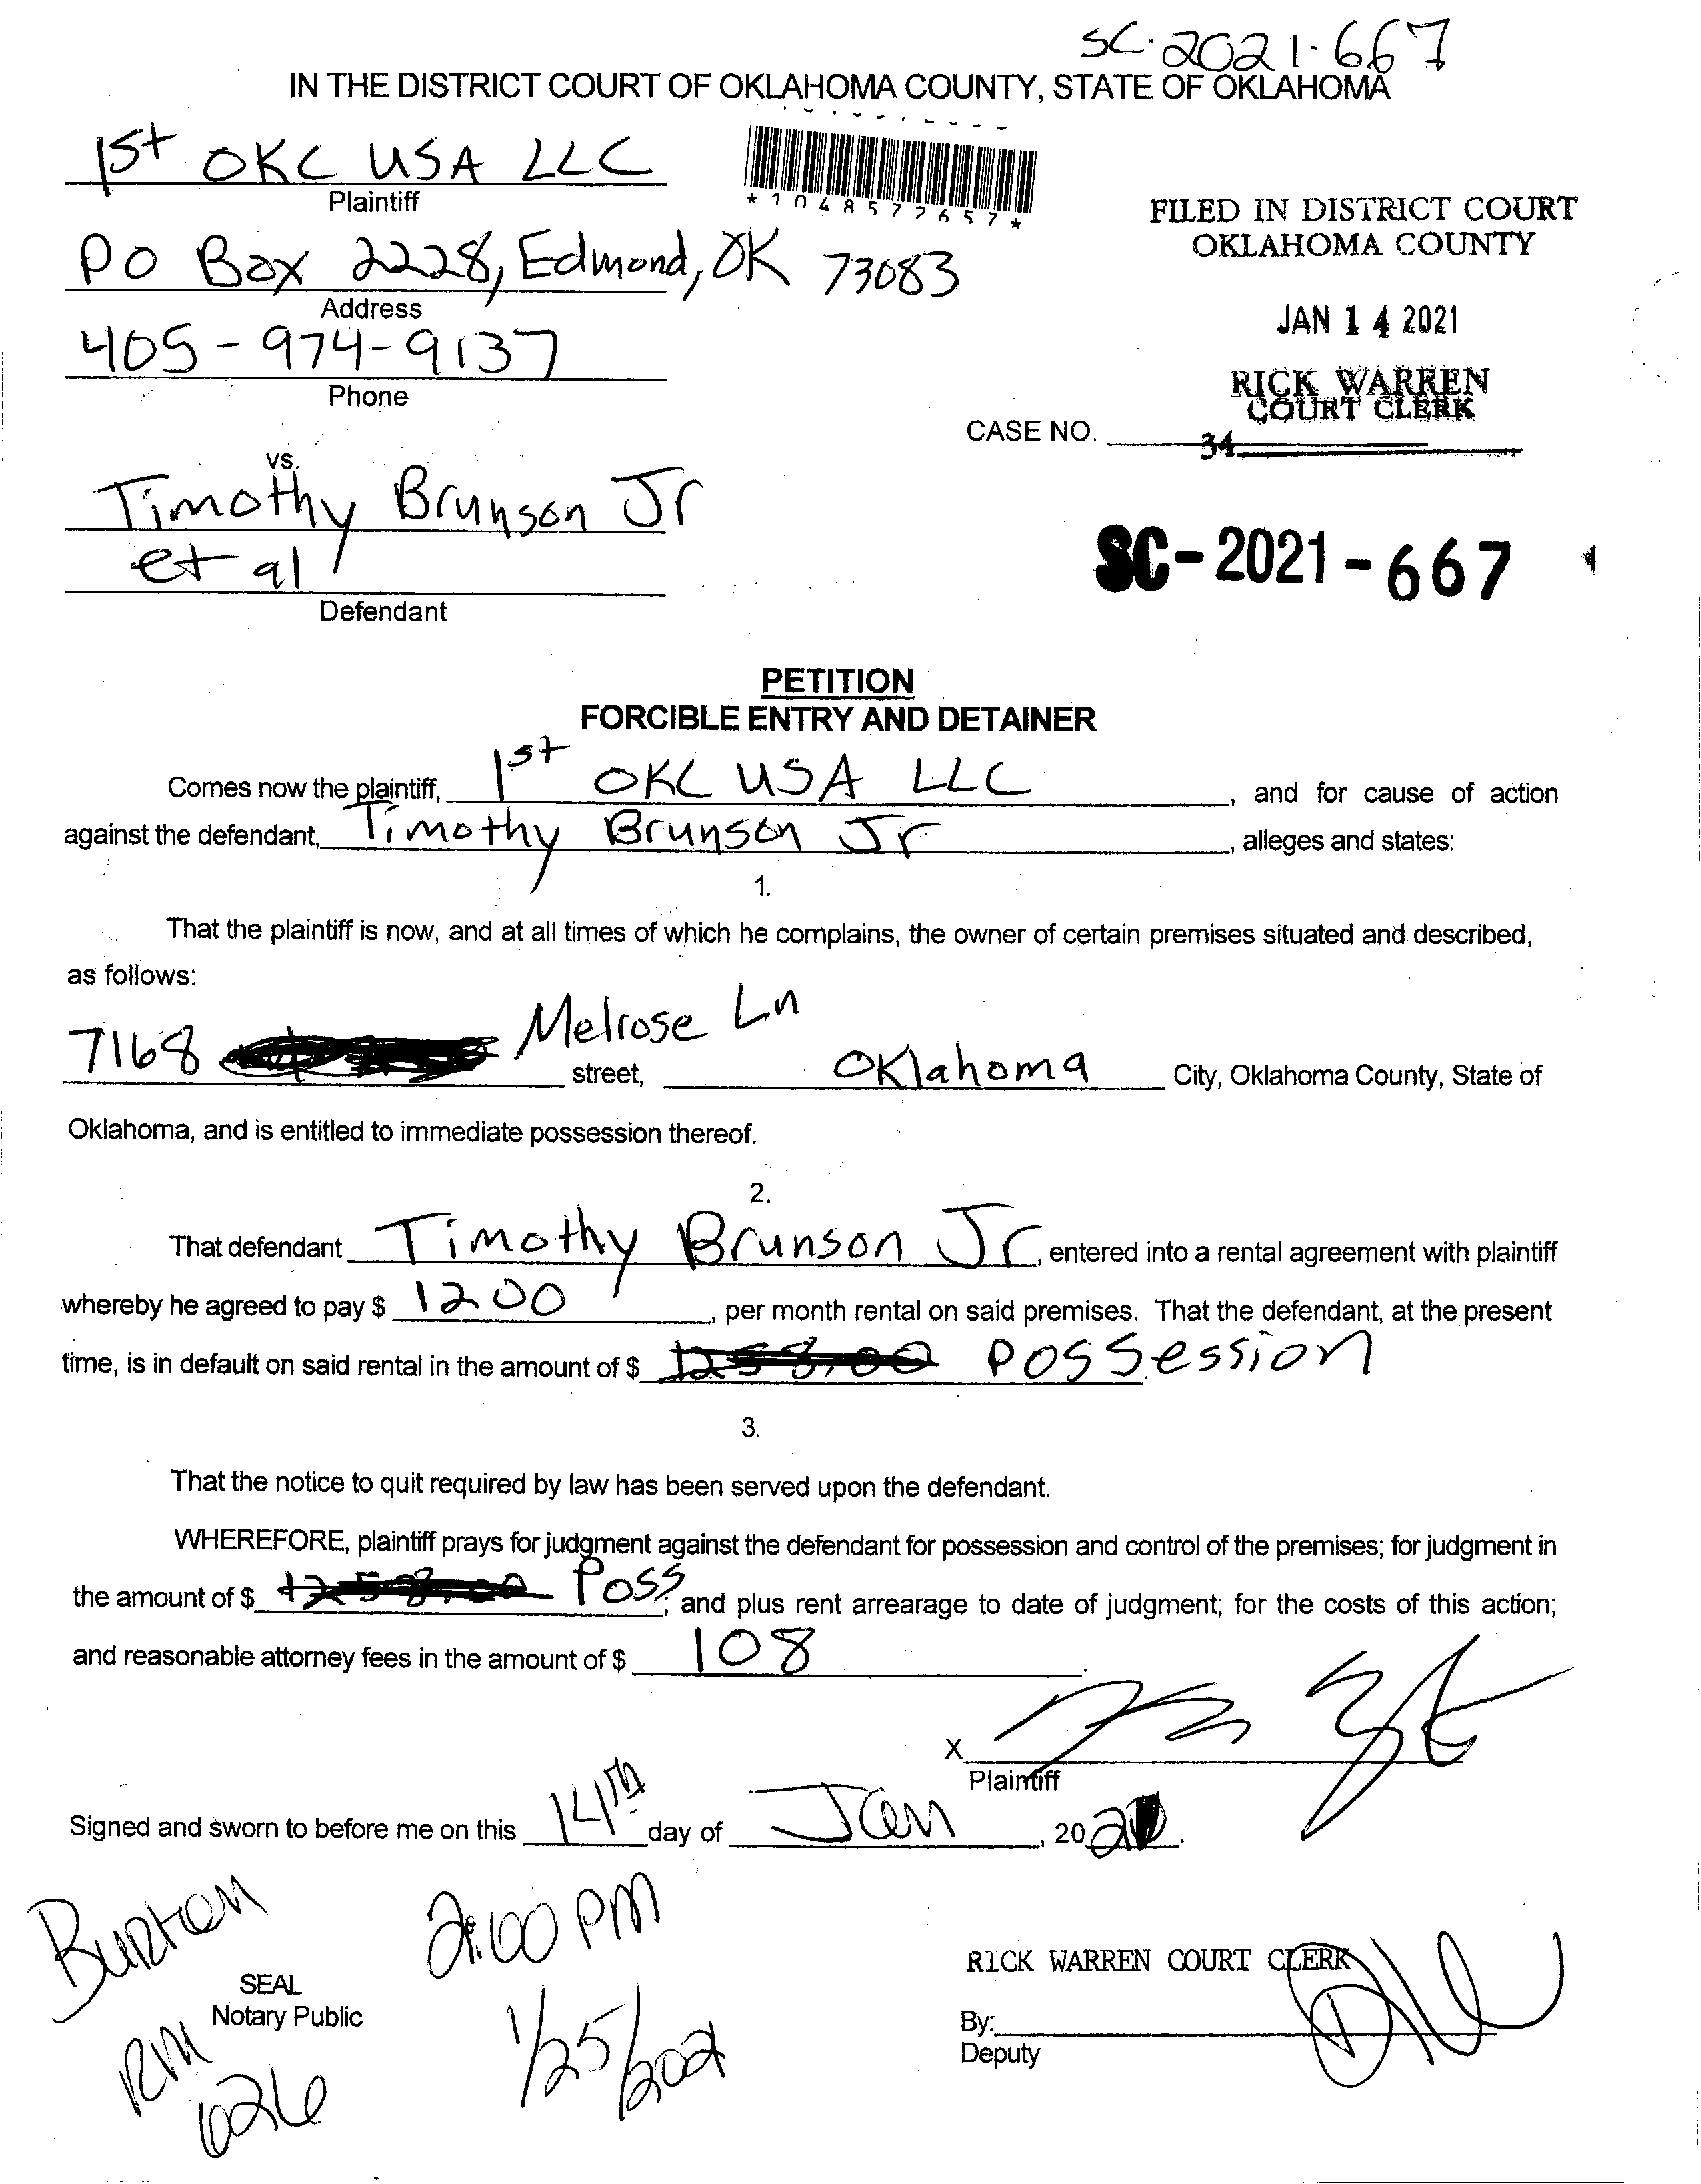 SC-2021-667
IN THE DISTRICT COURT OF OKLAHOMA COUNTY, STATE OF OKLAHOMA
1st OKC USA LLC
Plaintiff
*1048577657*
FILED IN DISTRICT COURT
OKLAHOMA COUNTY
PO Box 2228, Edmond, OK 73083
Address
JAN 14 2021
405-974-9137
Phone
RICK WARREN
COURT CLERK
CASE NO.
34
vs.
Timothy Brunson Jr
et al
Defendant
SC-2021-667
PETITION
FORCIBLE ENTRY AND DETAINER
Comes now the plaintiff, 1st OKC USA LLC, and for cause of action
against the defendant, Timothy Brunson Jr, alleges and states:
1.
That the plaintiff is now, and at all times of which he complains, the owner of certain premises situated and described,
as follows:
7168 Melrose Ln street, Oklahoma City, Oklahoma County, State of
Oklahoma, and is entitled to immediate possession thereof.
2.
That defendant Timothy Brunson Jr, entered into a rental agreement with plaintiff
whereby he agreed to pay $ 1200, per month rental on said premises. That the defendant, at the present
time, is in default on said rental in the amount of $ 1258.00 possession
3.
That the notice to quit required by law has been served upon the defendant.
WHEREFORE, plaintiff prays for judgment against the defendant for possession and control of the premises; for judgment in
the amount of $ 1258.00 Poss; and plus rent arrearage to date of judgment; for the costs of this action;
and reasonable attorney fees in the amount of $ 108.
X
Plaintiff
Signed and sworn to before me on this 14th day of Jan, 2021.
Burton
2:00 PM
SEAL
Notary Public
RICK WARREN COURT CLERK
1/25/202
By:
Deputy
RM
026